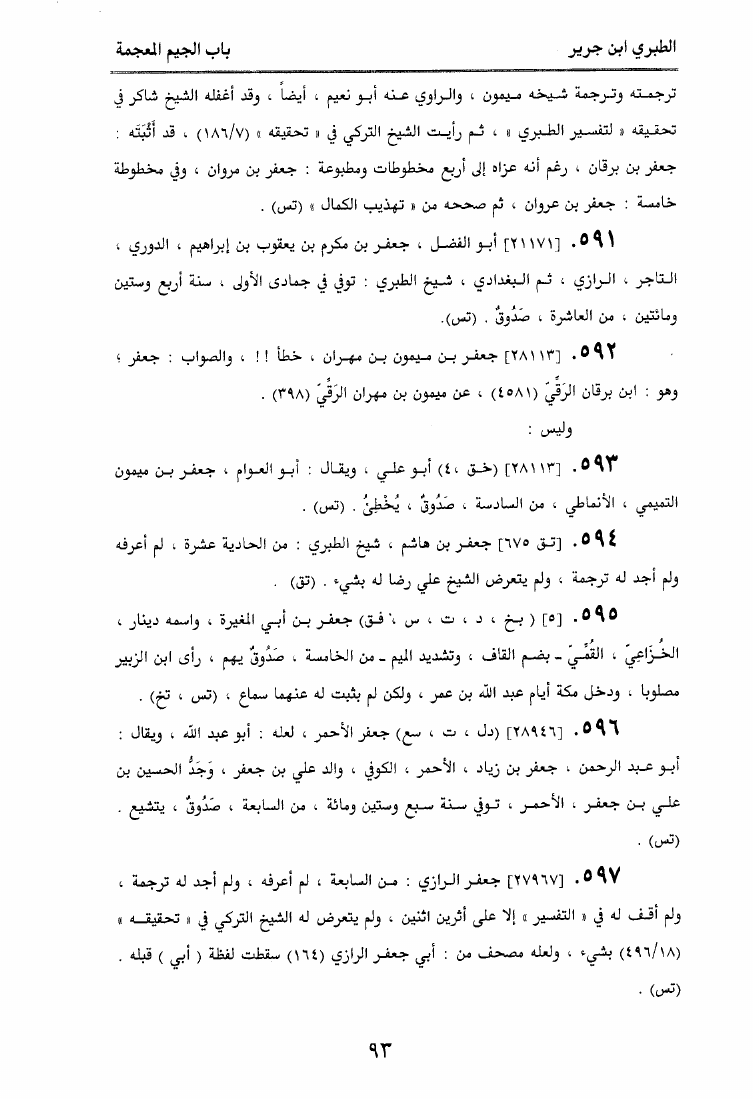 الطبري ابن جرير
باب الجيم المعجمة
ترجمته وترجمة شيخه ميمون ، والراوي عنه أبو نعيم ، أيضاً ، وقد أغفله الشيخ شاكر في
تحقيقه « لتفسير الطبري » ، ثم رأيت الشيخ التركي في « تحقيقه » (١٨٦/٧) ، قد أَثْبَتَه :
جعفر بن برقان ، رغم أنه عزاه إلى أربع مخطوطات ومطبوعة : جعفر بن مروان ، وفي مخطوطة
خامسة : جعفر بن عروان ، ثم صححه من « تهذيب الكمال » (تس) .
٥٩١. [٢١١٧١] أبو الفضل ، جعفر بن مكرم بن يعقوب بن إبراهيم ، الدوري ،
التاجر ، الرازي ، ثم البغدادي ، شيخ الطبري : توفي في جمادى الأولى ، سنة أربع وستين
ومائتين ، من العاشرة ، صَدُوقٌ . (تس).
٥٩٢. [٢٨١١٣] جعفر بن ميمون بن مهران ، خطأ !! ، والصواب : جعفر ؛
وهو : ابن برقان الرَقِّيّ (٤٥٨١) ، عن ميمون بن مهران الرَقِّيّ (٣٩٨) .
وليس :
٥٩٣. [٢٨١١٣] (خق ،٤) أبو علي ، ويقال : أبو العوام ، جعفر بن ميمون
التميمي ، الأنماطي ، من السادسة ، صَدُوقٌ ، يُخْطِئُ . (تس) .
٥٩٤. [تق ٦٧٥] جعفر بن هاشم ، شيخ الطبري : من الحادية عشرة ، لم أعرفه
ولم أجد له ترجمة ، ولم يتعرض الشيخ علي رضا له بشيء . (تق) .
٥٩٥. [٥] ( بخ ، د ، ت ، س ، فق) جعفر بن أبي المغيرة ، واسمه دينار ،
الخُزَاعِيّ ، القُمِّيّ ـ بضم القاف ، وتشديد الميم ـ من الخامسة ، صَدُوقٌ يهم ، رأى ابن الزبير
مصلوبا ، ودخل مكة أيام عبد الله بن عمر ، ولكن لم يثبت له عنهما سماع ، (تس ، تخ) .
٥٩٦. [٢٨٩٤٦] (دل ، ت ، سع) جعفر الأحمر ، لعله : أبو عبد الله ، ويقال :
أبو عبد الرحمن ، جعفر بن زياد ، الأحمر ، الكوفي ، والد علي بن جعفر ، وَجَدُّ الحسين بن
علي بن جعفر ، الأحمر ، توفي سنة سبع وستين ومائة ، من السابعة ، صَدُوقٌ ، يتشيع .
(تس) .
٥٩٧. [٢٧٩٦٧] جعفر الرازي : من السابعة ، لم أعرفه ، ولم أجد له ترجمة ،
ولم أقف له في « التفسير » إلا على أثرين اثنين ، ولم يتعرض له الشيخ التركي في « تحقيقه »
(٤٩٦/١٨) بشيء ، ولعله مصحف من : أبي جعفر الرازي (١٦٤) سقطت لفظة ( أبي ) قبله .
(تس) .
٩٣